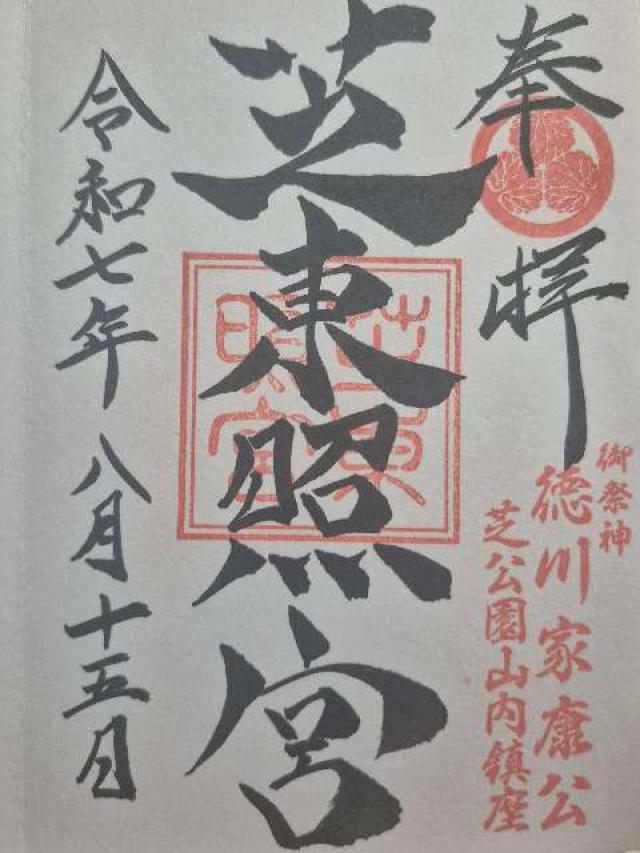 奉拝
御祭神
徳川家康公
芝公園山内鎮座
芝東照宮
芝東照宮
令和七年八月十五日